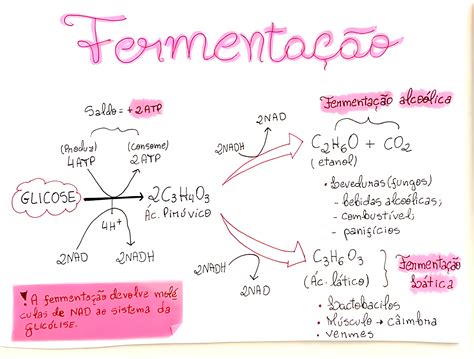 Fermentação
Saldo = +2ATP
(Produz) (Consome)
4ATP 2ATP
GLICOSE
2C3H4O3
Ác. Pirúvico
4H+
2NAD 2NADH
! A fermentação devolve molé
culas de NAD ao sistema da
GLICÓLISE.
2NAD
2NADH
Fermentação alcoólica
C2H6O + CO2
(etanol)
• Leveduras (fungos)
- bebidas alcoólicas;
- combustível;
- panifícios
2NADH
2NAD
C3H6O3
(Ác. lático)
Fermentação
Lática
• Lactobacilos
• Músculo → câimbra
• vermes